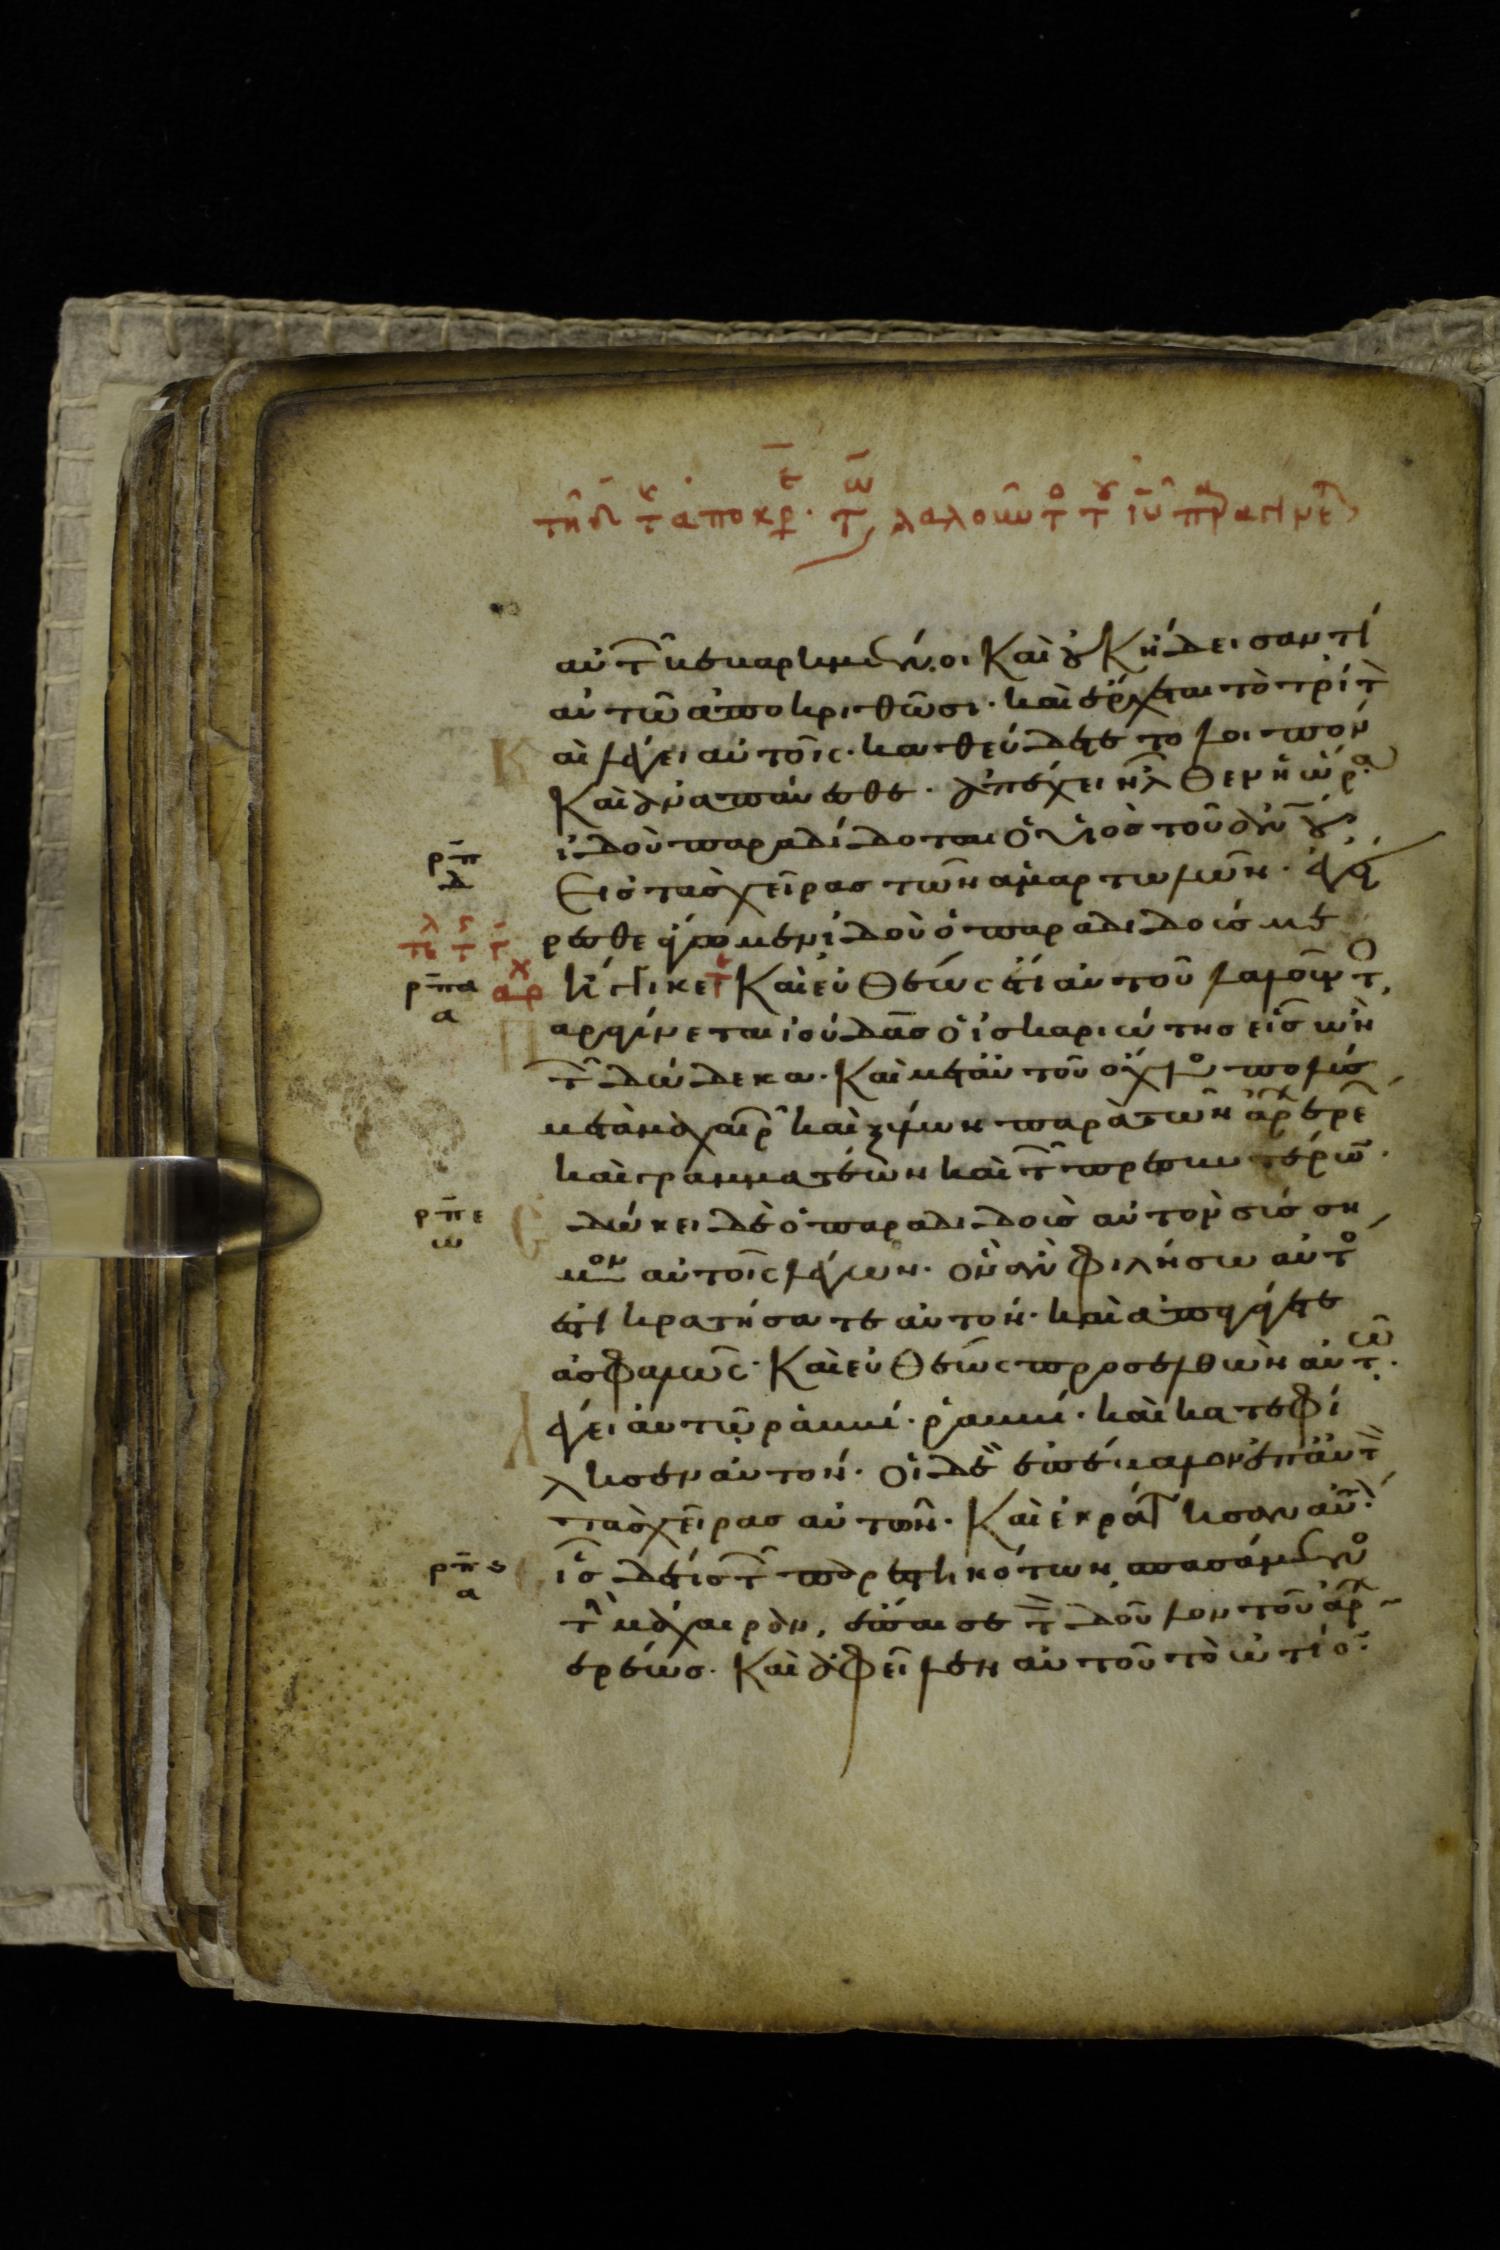 αὐτ βεβαρημένοι καὶ οὐκ ἤδεισαν τί
αὐτῶ ἀποκριθῶσι· καὶ ἔρχεται τὸ τρίτ
καὶ λέγει αὐτοῖς· καθεύδετε το λοιπὸν
καὶ ἀναπαύεσθε· ἀπέχει ἦλθεν ἡ ὥρα
ἰδοὺ παραδίδοται ὁ υἱὸς τοῦ ἀνου
εἰς τὰς χεῖρας τῶν ἁμαρτωλῶν· ἐγεί
ρεσθε ἄγωμεν ἰδοὺ ὁ παραδιδούς με
ἤγγικε τε καὶ εὐθέως ἔτι αὐτοῦ λαλοῦντ
παραγίνεται ἰούδας ὁ ἰσκαριώτης εἷς ὢν
τ δώδεκα· καὶ μετ αὐτοῦ ὄχλο πολύς
μετὰ μαχαιρ καὶ ξύλων παρὰ τῶν ἀρχιερε
καὶ γραμματέων καὶ τ πρεσβυτέρων·
δεδώκει δὲ ὁ παραδιδοὺς αὐτὸν σύσση
μον αὐτοῖς λέγων· ὃν ἂν φιλήσω αὐτό
ἐστι κρατήσατε αὐτόν· καὶ ἀπαγάγετε
ἀσφαλῶς· καὶ εὐθέως προσελθὼν αὐτῶ·
λέγει αὐτῶ ῥαββί· ῥαββί· καὶ κατεφί
λησεν αὐτόν· οἱ δὲ ἐπέβαλον ἐπ αὐτ
τὰς χεῖρας αὐτῶν· καὶ ἐκράτησαν αὐτ·
εἷς δέ τις τ παρεστηκότων σπασάμενο
τ μάχαιραν, ἔπαισε τ δοῦλον τοῦ ἀρχι
ερέως· καὶ ἀφεῖλεν αὐτοῦ τὸ ὠτίο·
ρπ
δ
ρπα
α
αρχ
ρπε
ρπς
α